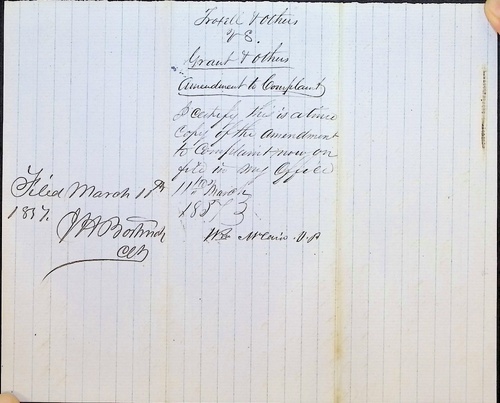 Troxell & others
vs.
Grant & others
Amendment to Complaint
I certify this is a true
copy of the amendment
to Complaint now on
file in my Office
11th March
1857
Filed March 11th
1857.
Clk